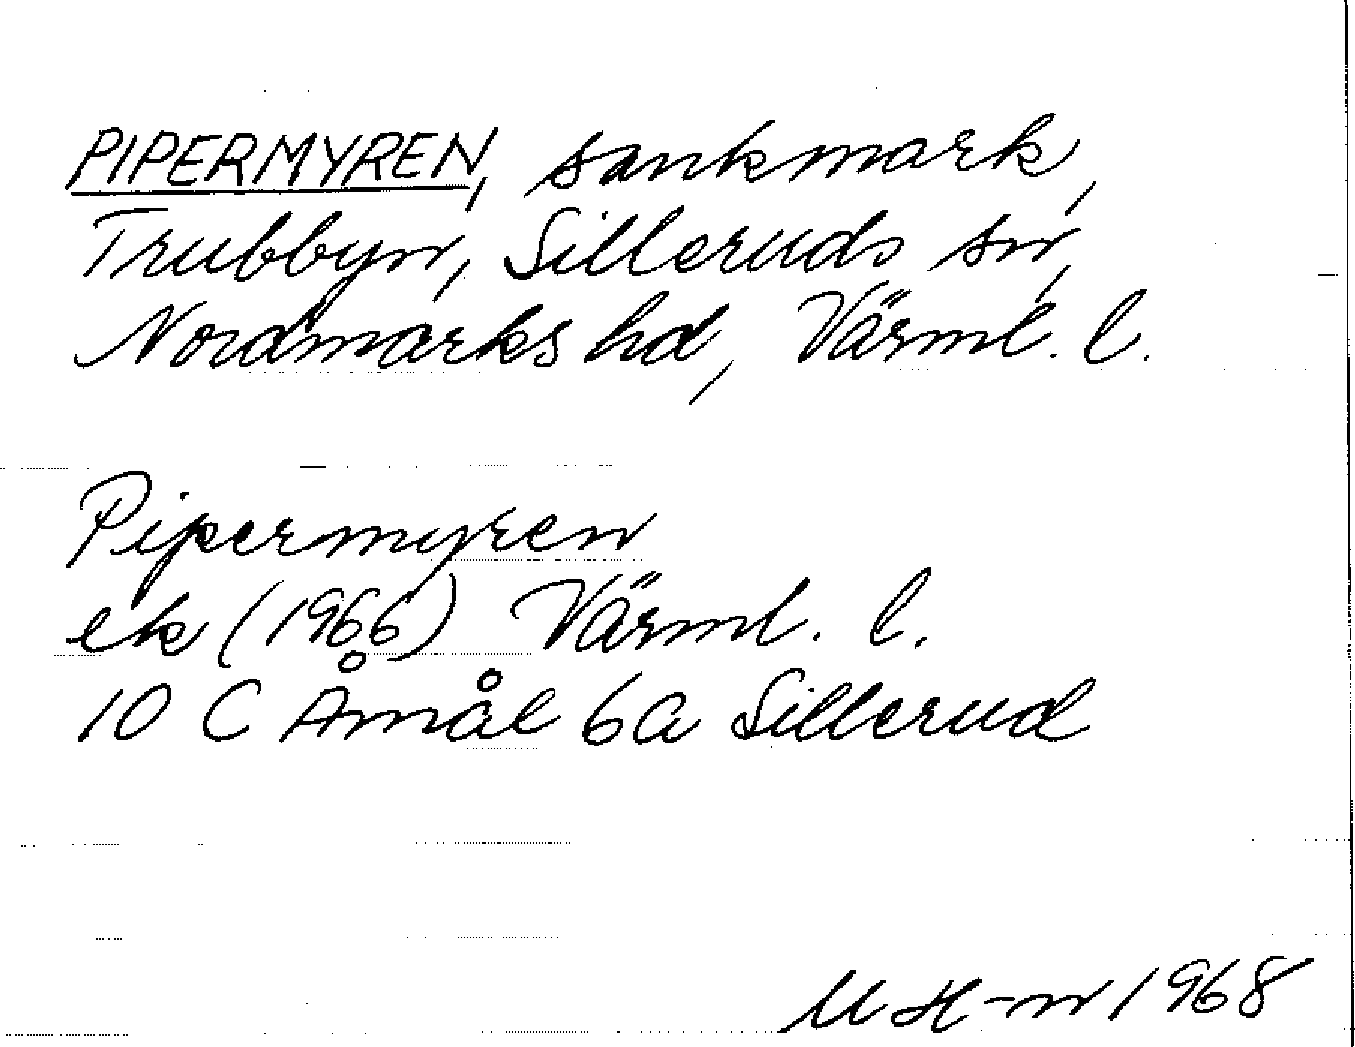 PIPERMYREN, sankmark,
Trubbyn, Silleruds sn,
Nordmarks hd, Värml. l.
Pipermyren
ek (1966) Värml. l.
10 C Åmål 6a Sillerud
M H-n 1968